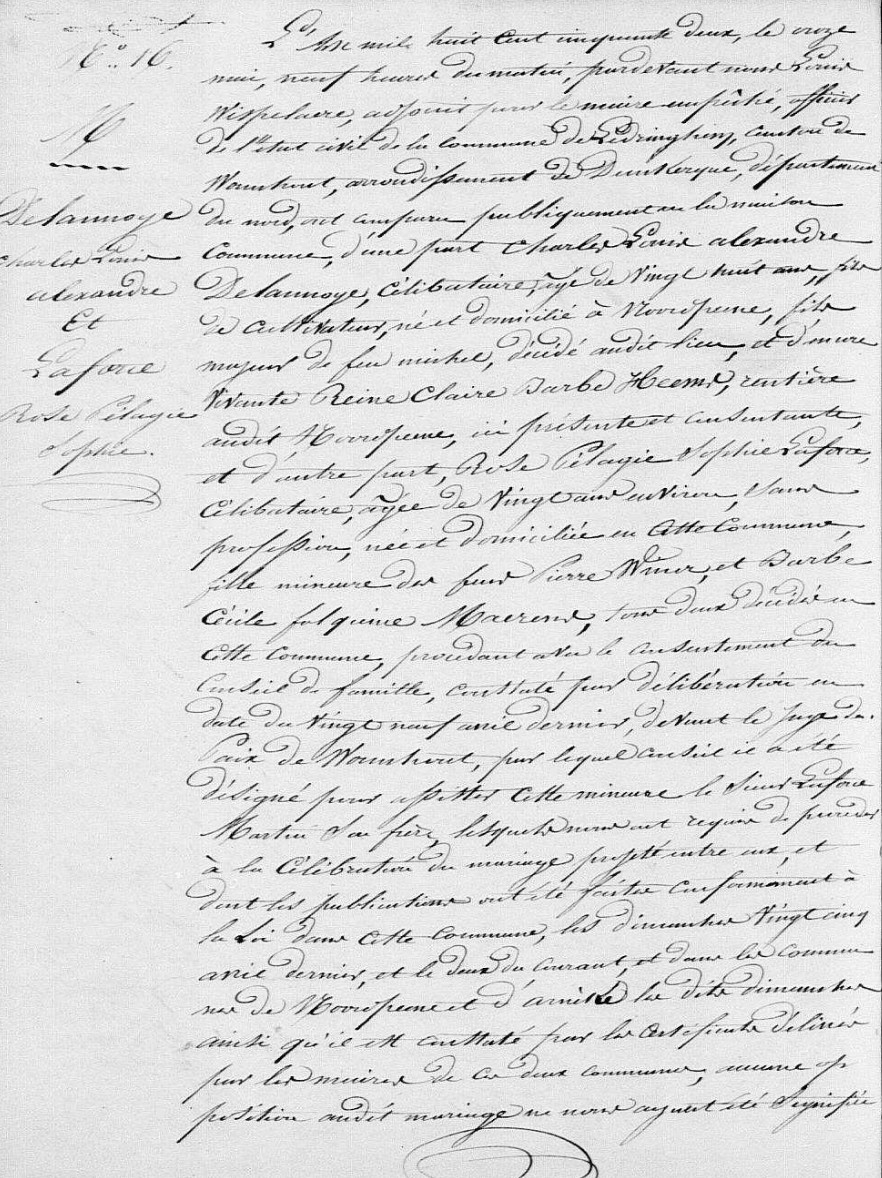 N.º 16.
M
Delannoye
Charles Louis
alexandre
Et
Laforce
Rose Pélagie
Sophie.
L'An mile huit cent cinquante deux, le onze
mai, neuf heures du matin, pardevant nous Louis
Wispelaere, adjoint pour le maire empêché, officier
de l'état civil de la Commune de Ledringhem, canton de
Wormhout, arrondissement de Dunkerque, département
du nord, ont comparu publiquement en la maison
Commune, d'une part Charles Louis alexandre
Delannoye, Célibataire, âgé de Vingt huit ans, fils
de Cultivateur, né et domicilié à Noordpeene, fils
majeur de feu michel, décédé audit lieu, et d'encore
Vivante Reine Claire Barbe Heems, rentière
audit Noordpeene, ici présente et consentante,
et d'autre part, Rose Pélagie Sophie Laforce,
Célibataire, agée de Vingt ans environ, sans
profession, née et domiciliée en Cette Commune,
fille mineure des feus Pierre Winoc, et Barbe
Cécile folquine Maerens, tous deux décédés en
Cette Commune, procédant avec le consentement du
Conseil de famille, constaté par délibération en
date du Vingt neuf avril dernier, devant le Juge de
Paix de Wormhout, par lequel conseil il a été
désigné pour assister Cette mineure le Sieur Laforce
Martin Son frère, lesquels nous ont requis de procéder
à la Célébration du mariage projeté entre eux, et
dont les publications ont été faites conformément à
la Loi dans Cette Commune, les dimanches Vingt cinq
avril dernier, et le deux du courant, et dans les commu
nes de Noordpeene et d' les dits dimanches
ainsi qu'il est constaté par les Certificats délivrés
par les maires de Ces deux communes, aucune op
position audit mariage ne nous ayant été Signifiée